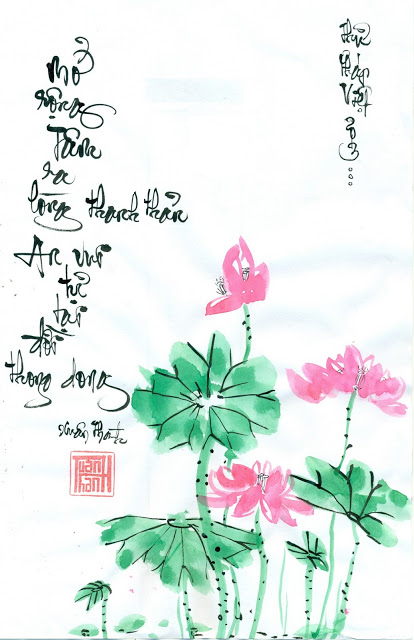 Mở
rộng
Tâm
ra
lòng thanh thản
An vui
tự
tại
đời
thong dong
Thư
Pháp
Việt